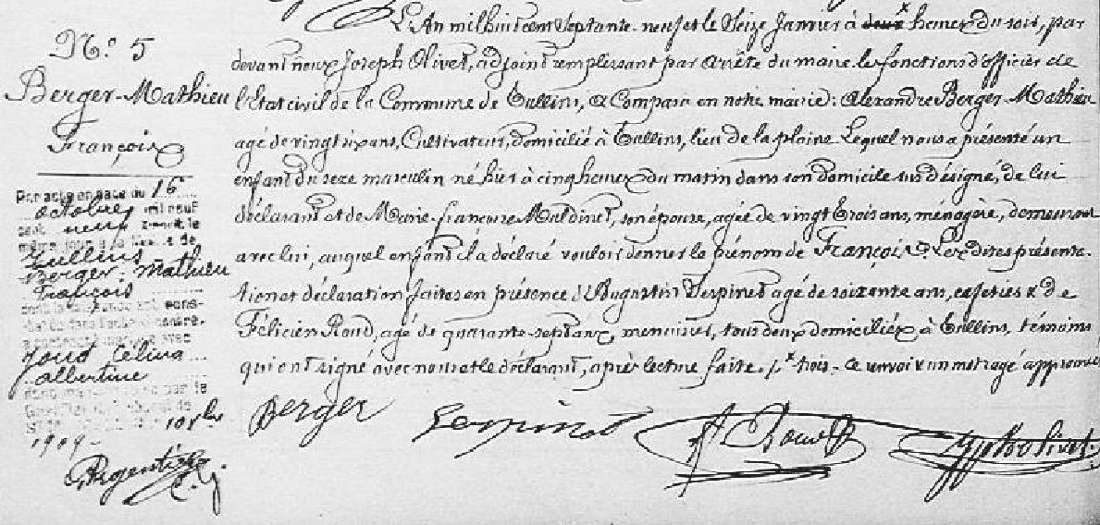 N.o 5
Berger-Mathieu
François
Par acte en date du 16
octobre mil neuf
cent neuf
Tullins
Berger-Mathieu
François
Célina
albertine
1909
L'An mil huit cent septante-neuf et le Seize Janvier à deux x heures du soir, par
devant nous Joseph Olivet, adjoint remplissant par arrêté du maire les fonctions d'officier de
l'Etat civil de la Commune de Tullins, a Comparu en notre mairie: Alexandre Berger-Mathieu
agé de vingt six ans, Cultivateur, domicilié à Tullins, lieu de la plaine Lequel nous a présenté un
enfant du sexe masculin né hier à cinq heures du matin dans son domicile sus désigné, de lui
déclarant et de Marie-françoise Muldinet, son épouse, agée de vingt trois ans, ménagère, demeurant
avec lui, auquel enfant il a déclaré vouloir donner le prénom de François. Les dites présenta-
tion et déclaration faites en présence d'Augustin Despinet agé de soixante ans, cafetier & de
Félicien Roud, agé de quarante-sept ans, menuisier, tous deux domiciliés à Tullins, témoins
qui ont signé avec nous et le déclarant, après lecture faite. x trois. ce renvoi un mot rayé approuvés
Berger